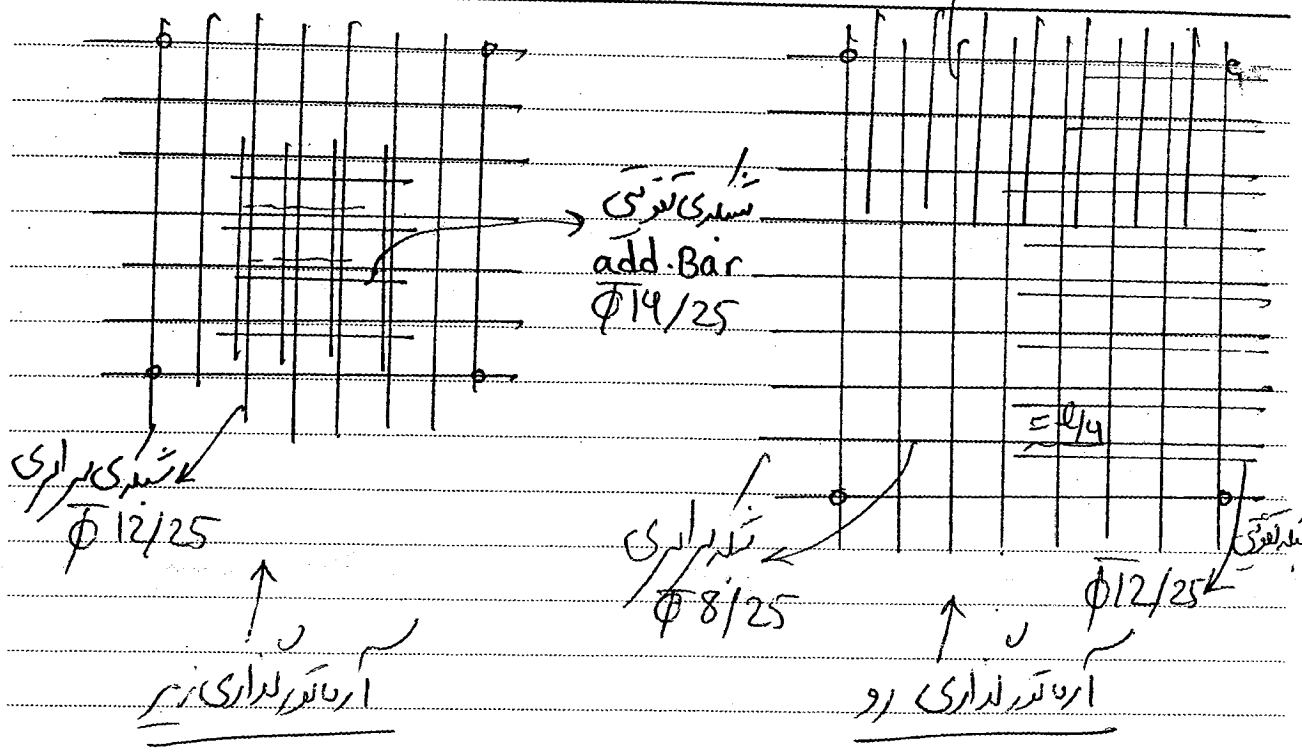 شبکه‌ی تقویتی
add. Bar
Φ14/25
شبکه‌ی سراسری
Φ12/25
آرماتورگذاری زیر
= l/4
شبکه سراسری
Φ8/25
شبکه تقویتی
Φ12/25
آرماتورگذاری رو